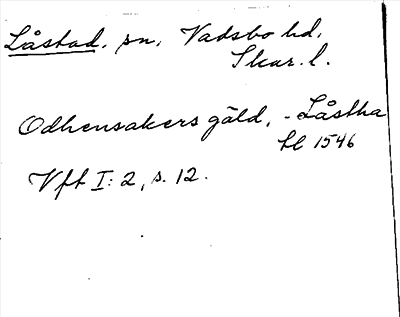 Låstad, sn, Vadsbo hd,
Skar. l.
Odhensakers gäld, - Låstha
tl 1546
Vft I: 2, s. 12.